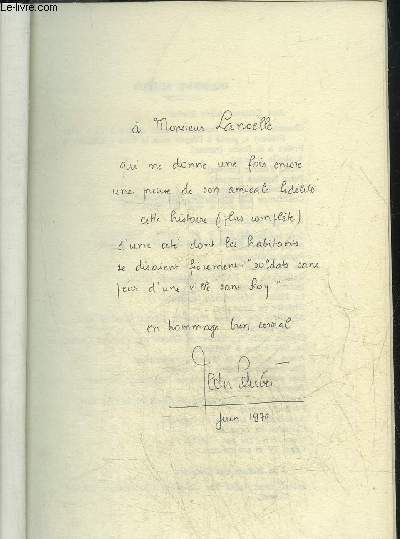 Le-livre.com
à Monsieur Lancelle
qui me donne une fois encore
une preuve de son amicale fidélité
cette histoire (plus complète)
d'une cité dont les habitants
se disaient fièrement "soldats sans
peur d'une ville sans Roy"
en hommage bien cordial
Jean
Juin 197